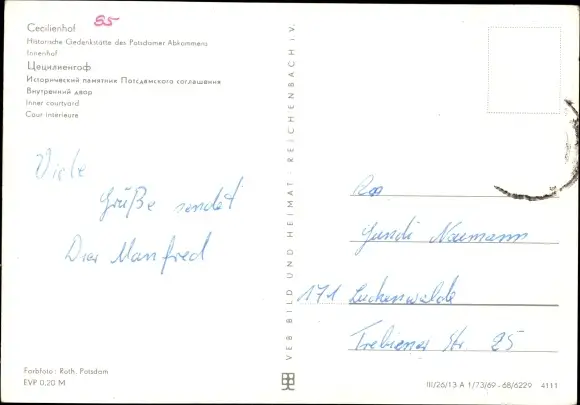 Cecilienhof 85
Historische Gedenkstätte des Potsdamer Abkommens
Innenhof
Цецилиенгоф
Исторический памятник Потсдамского соглашения
Внутренний двор
Inner courtyard
Cour intérieure
Viele
Grüße sendet
Dir Manfred
VEB BILD UND HEIMAT · REICHENBACH i.V.
Gundi Naumann
171 Luckenwalde
Trebiener Str 25
Farbfoto: Roth, Potsdam
EVP 0,20 M
III/26/13 A 1/73/69 - 68/6229 4111